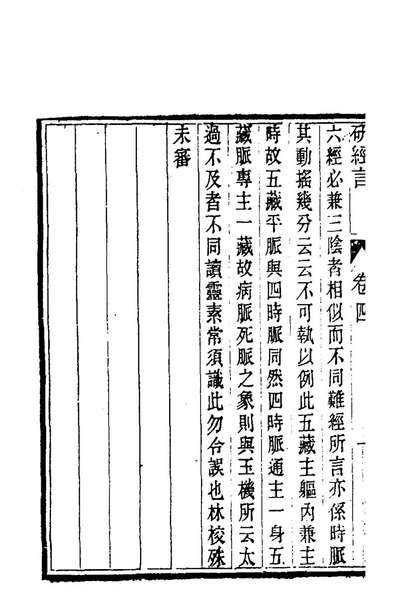 研經言 卷四
六經必兼三陰者相似而不同難經所言亦係時脈
其動搖幾分云云不可執以例此五藏主軀內兼主
時故五藏平脈與四時脈同然四時脈通主一身五
藏脈專主一藏故病脈死脈之象則與玉機所云太
過不及者不同讀靈素常須識此勿令誤也林校殊
未審